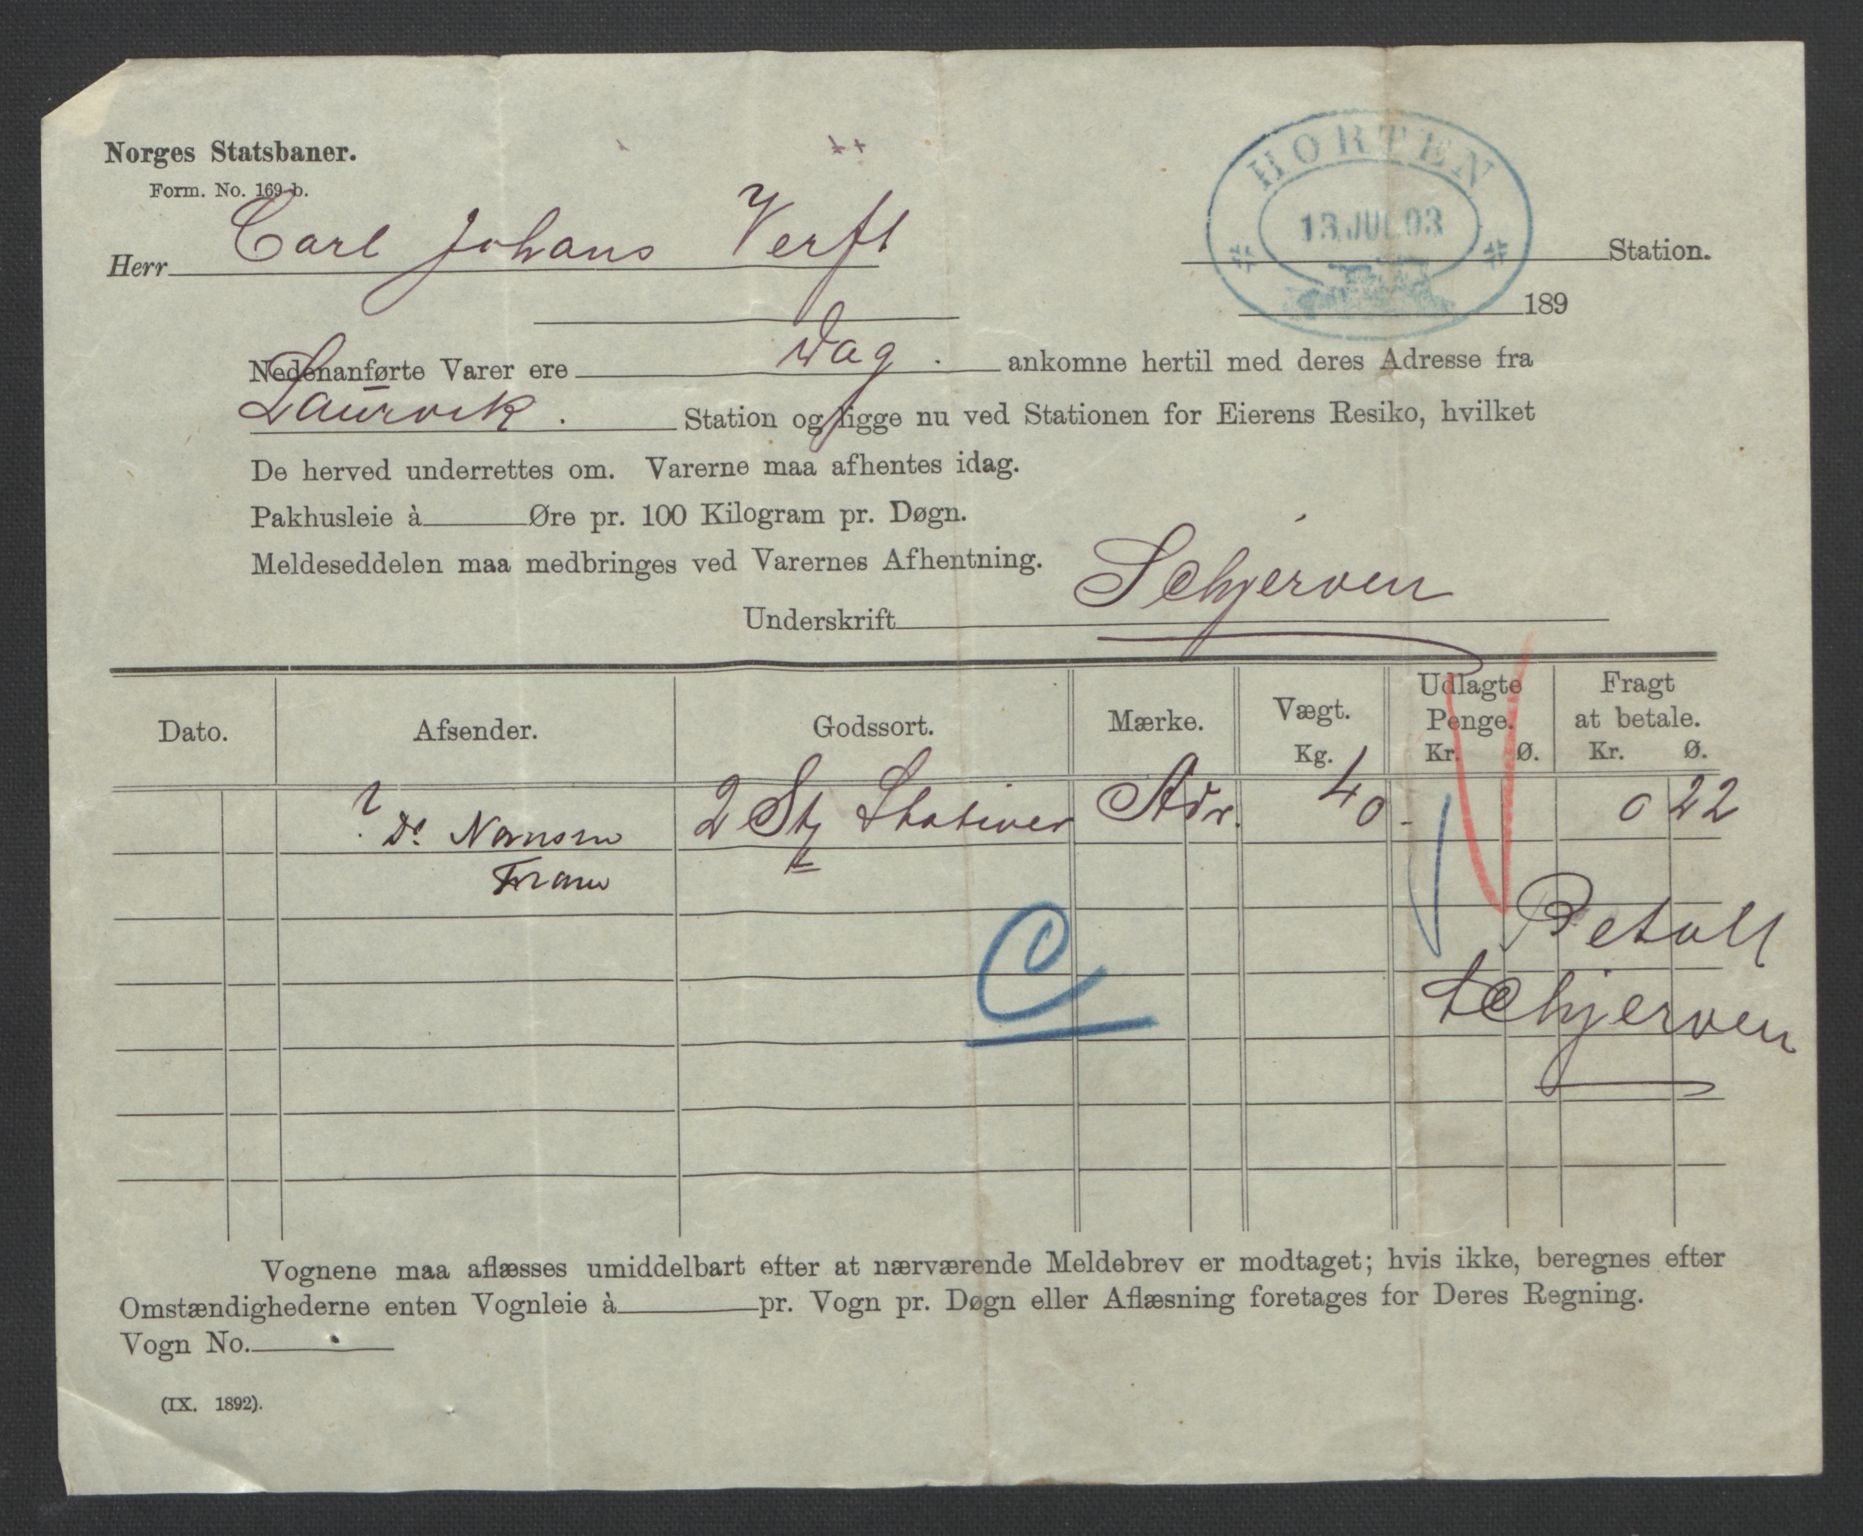 Norges Statsbaner.
Form. No. 169 b.
HORTEN
13 JUL 93
Herr Carl Johans Verft
Station.
189
Nedenanførte Varer ere idag. ankomne hertil med deres Adresse fra
Laurvik. Station og ligge nu ved Stationen for Eierens Resiko, hvilket
De herved underrettes om. Varerne maa afhentes idag.
Pakhusleie à Øre pr. 100 Kilogram pr. Døgn.
Meldeseddelen maa medbringes ved Varernes Afhentning.
Underskrift Schjerven
Dato. Afsender. Godssort. Mærke. Vægt. Kg. Udlagte Penge. Kr. Ø. Fragt at betale. Kr. Ø.
? Dr. Nansen 2 St Stativer Adr. 40 - 0 22
Fram
Betalt
C
Schjerven
Vognene maa aflæsses umiddelbart efter at nærværende Meldebrev er modtaget; hvis ikke, beregnes efter
Omstændighederne enten Vognleie à pr. Vogn pr. Døgn eller Aflæsning foretages for Deres Regning.
Vogn No.
(IX. 1892).